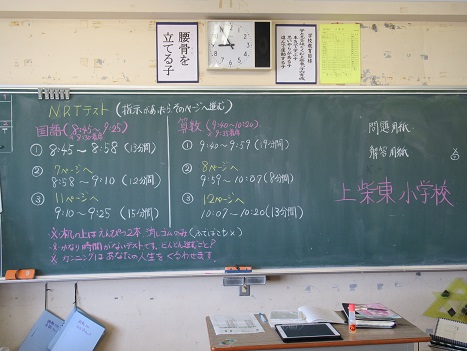 腰骨を
立てる子
学校教育目標
NRTテスト（指示があったらそのページへ進む）
国語（8:45～9:25）
① 8:45～8:58（13分間）
② 7ページへ
8:58～9:10（12分間）
③ 11ページへ
9:10～9:25（15分間）
算数（9:40～10:20）
① 9:40～9:59（19分間）
② 8ページへ
9:59～10:07（8分間）
③ 12ページへ
10:07～10:20（13分間）
問題用紙
解答用紙
上柴東小学校
※机の上はえんぴつ2本 消しゴムのみ（ふでばこも×）
※かなり時間がないテストです。どんどん進むこと？
※カンニングはあなたの人生をくるわせます